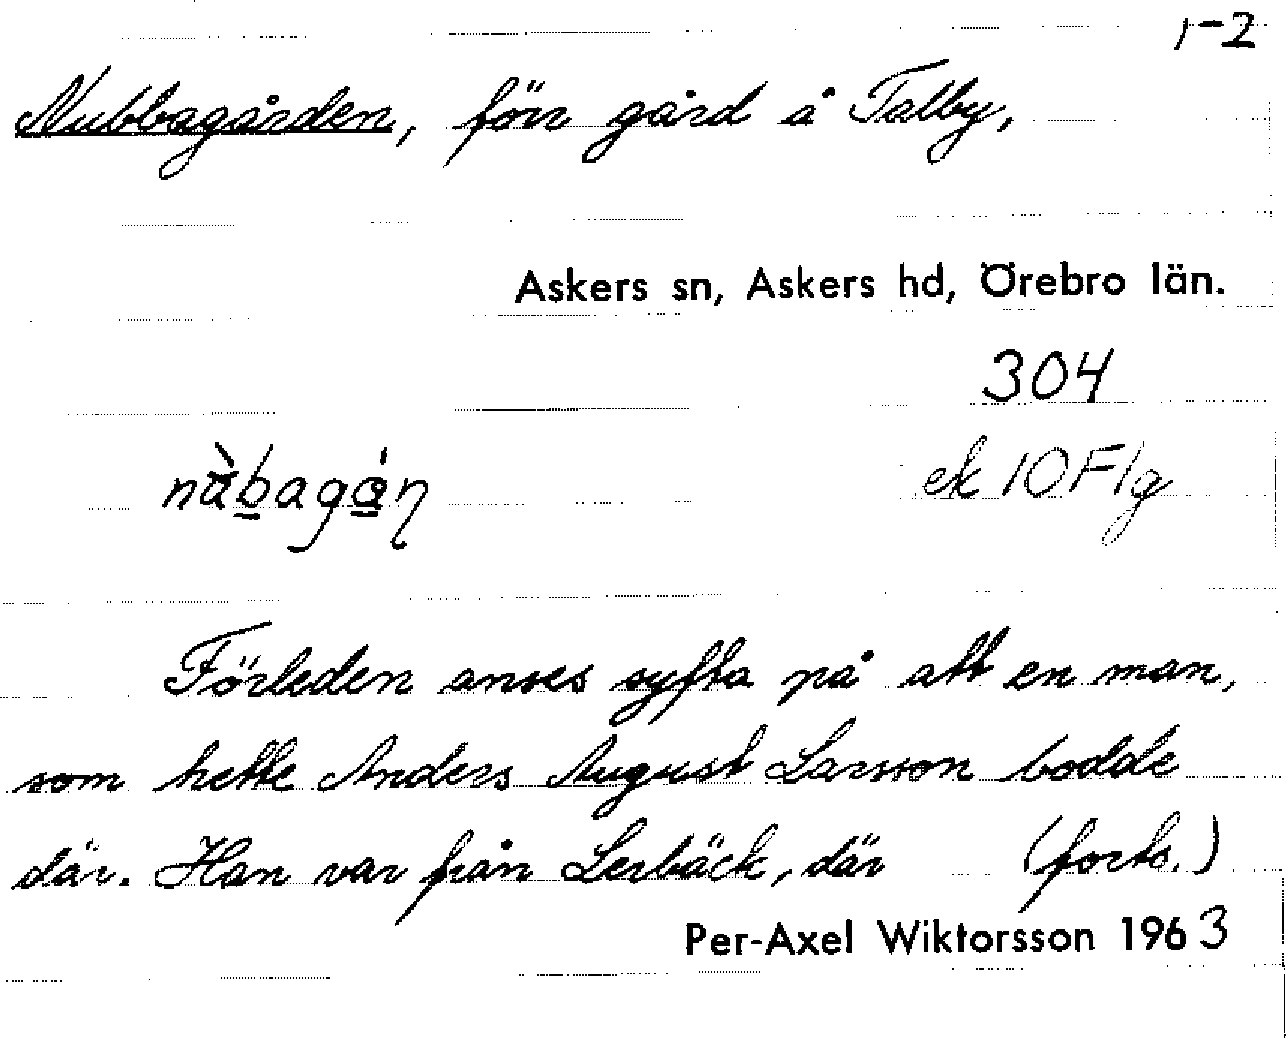 1-2
Nubbagården, förr gård å Talby,
Askers sn, Askers hd, Örebro län.
304
nùbagán
ek 10 F/g
Förleden anses syfta på att en man,
som hette Anders August Larsson bodde
där. Han var från Lerbäck, där (forts.)
Per-Axel Wiktorsson 1963